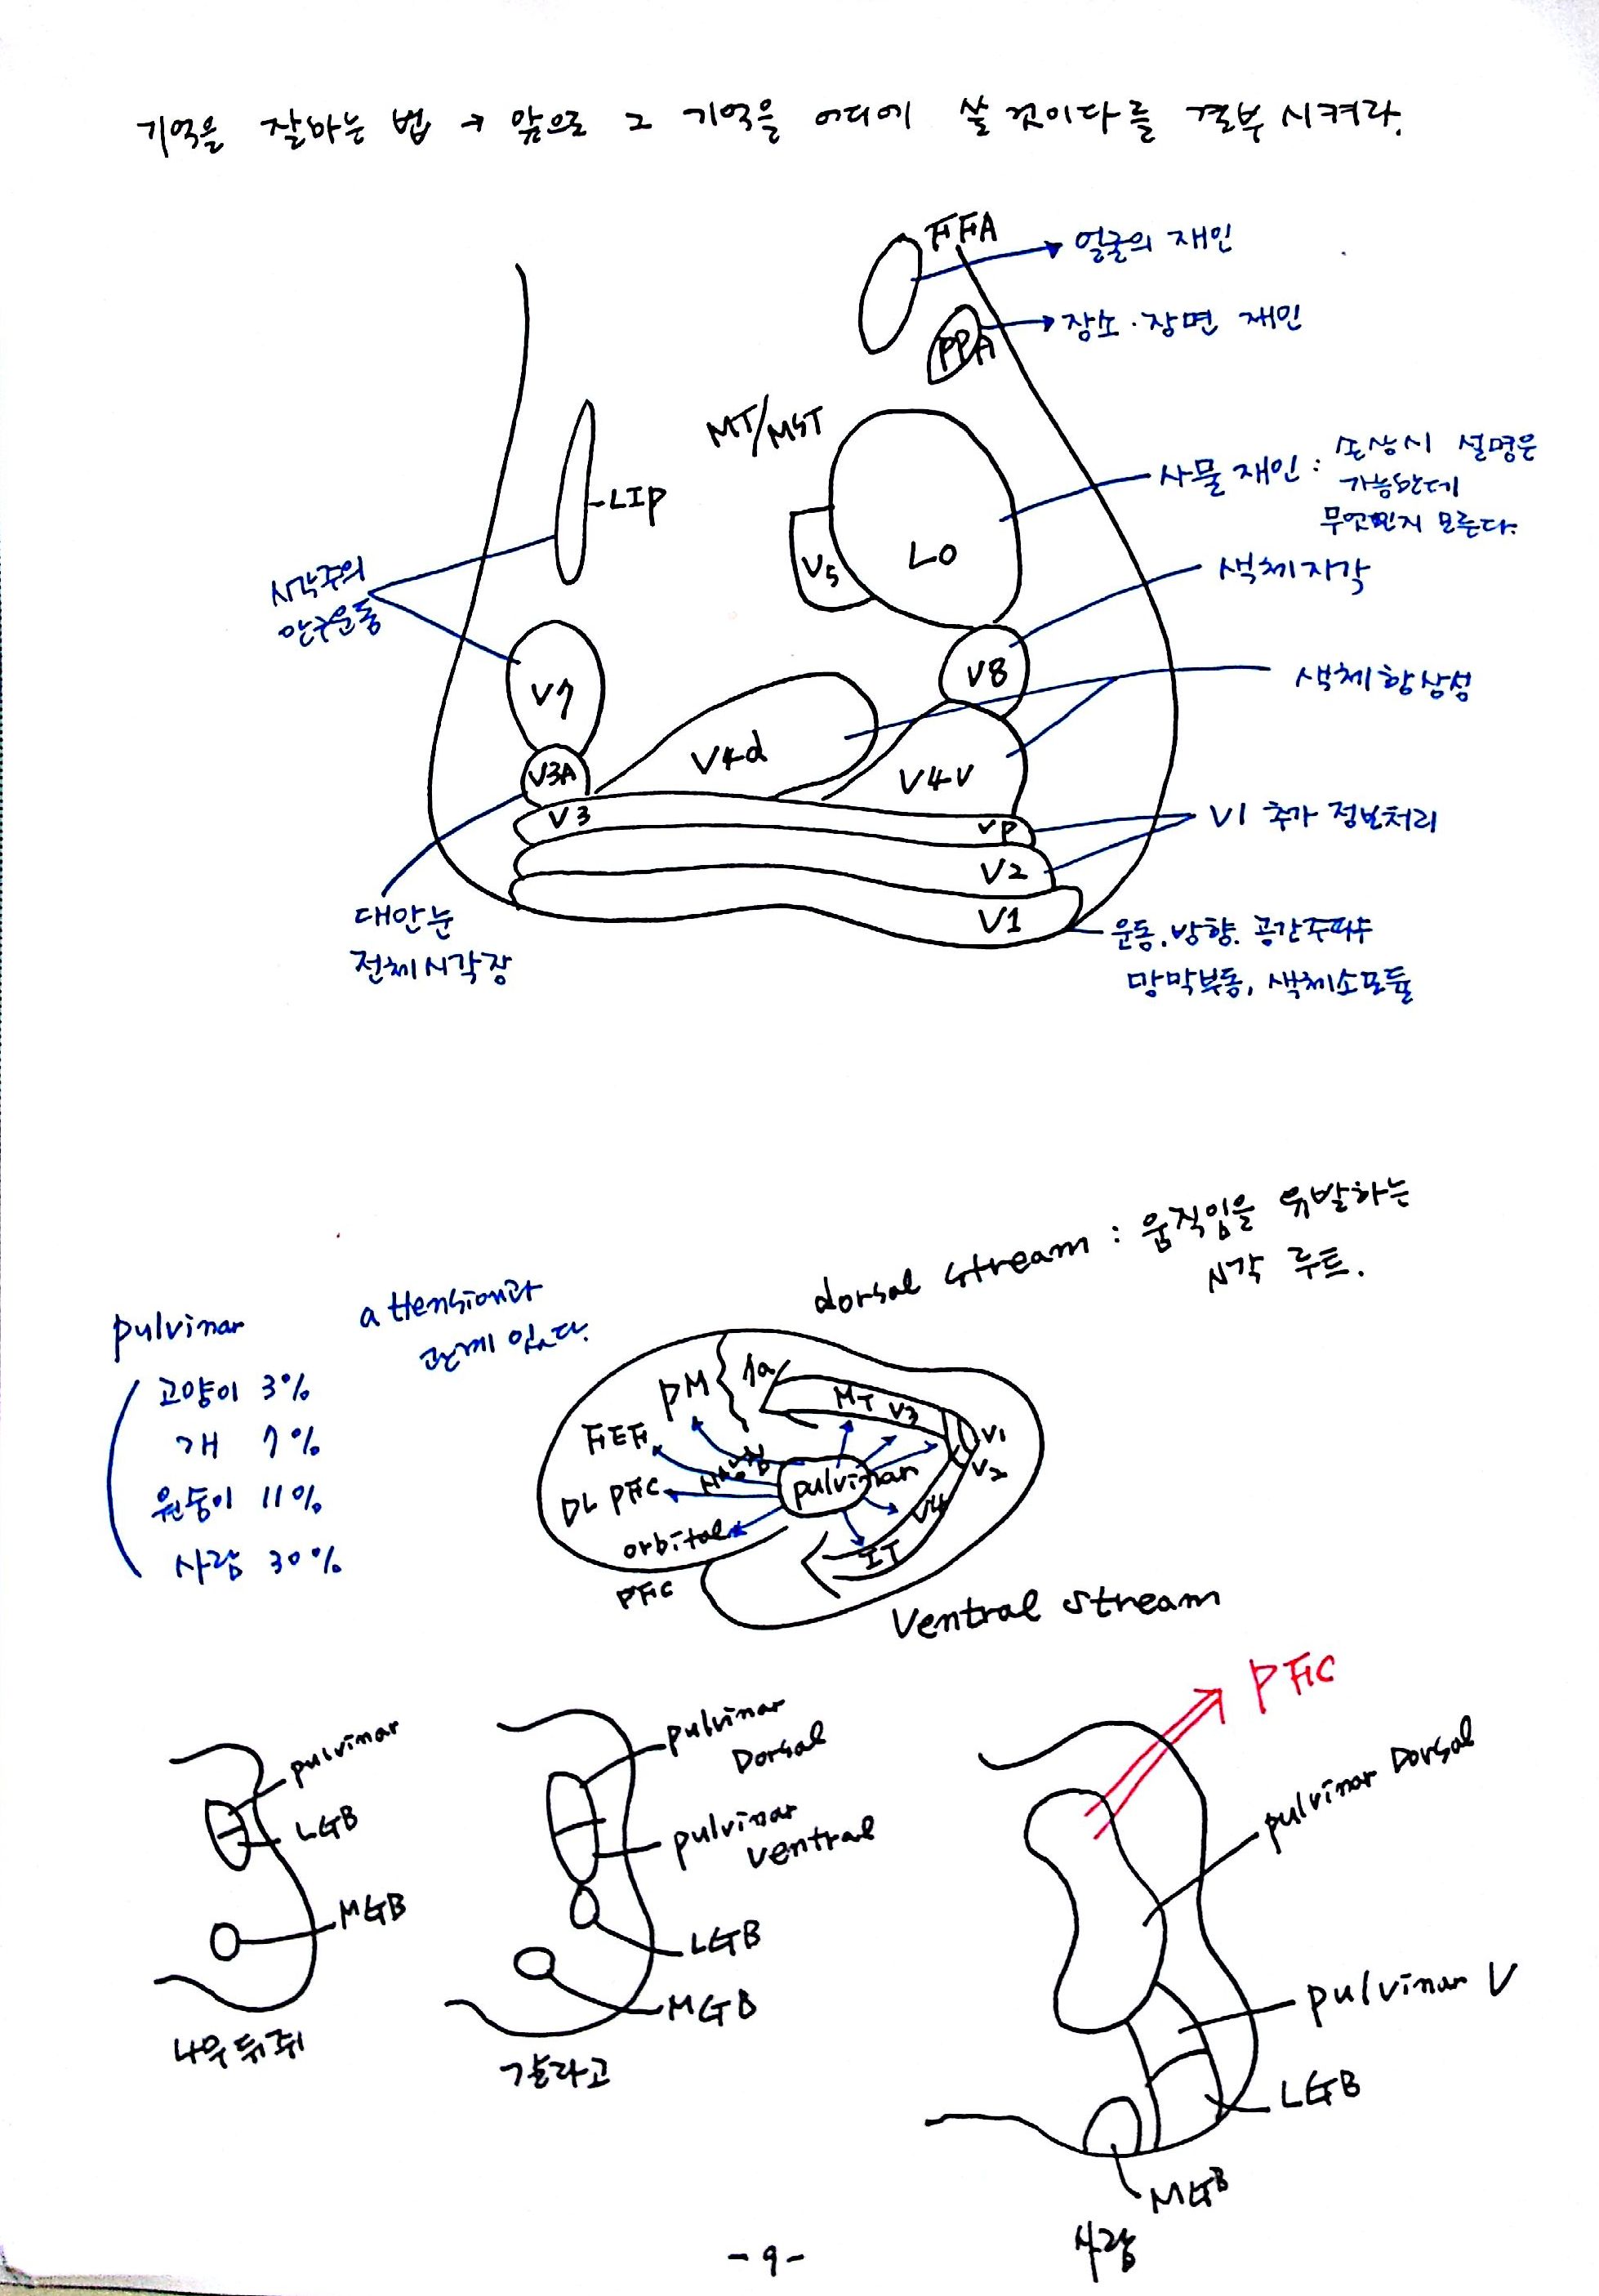 기억을 잘하는 법 → 앞으로 그 기억을 어디에 쓸 것이다를 결부시켜라.
FFA
얼굴의 재인
PPA
장소·장면 재인
MT/MST
LIP
사물 재인 : 손상시 설명은
가능한데
무엇인지 모른다.
V5
LO
시각주의
안구운동
색체지각
V7
V8
색체항상성
V4d
V3A
V4V
V3
VP
V1 추가 정보처리
V2
V1
대안눈
전체시각장
운동.방향.공간주파수
망막부동, 색체소모듈
dorsal stream : 움직임을 유발하는
시각 루트.
pulvinar
attension과
관계 있다.
고양이 3%
개 7%
원숭이 11%
사람 30%
PM
7a
MT
V3
V1
V2
FEF
DL PFC
pulvinar
V4
orbital
IT
PFC
Ventral stream
PFC
pulvinar
LGB
MGB
나무뒤쥐
pulvinar
Dorsal
pulvinar
ventral
LGB
MGB
갈라고
pulvinar Dorsal
pulvinar V
LGB
MGB
사람
- 9 -